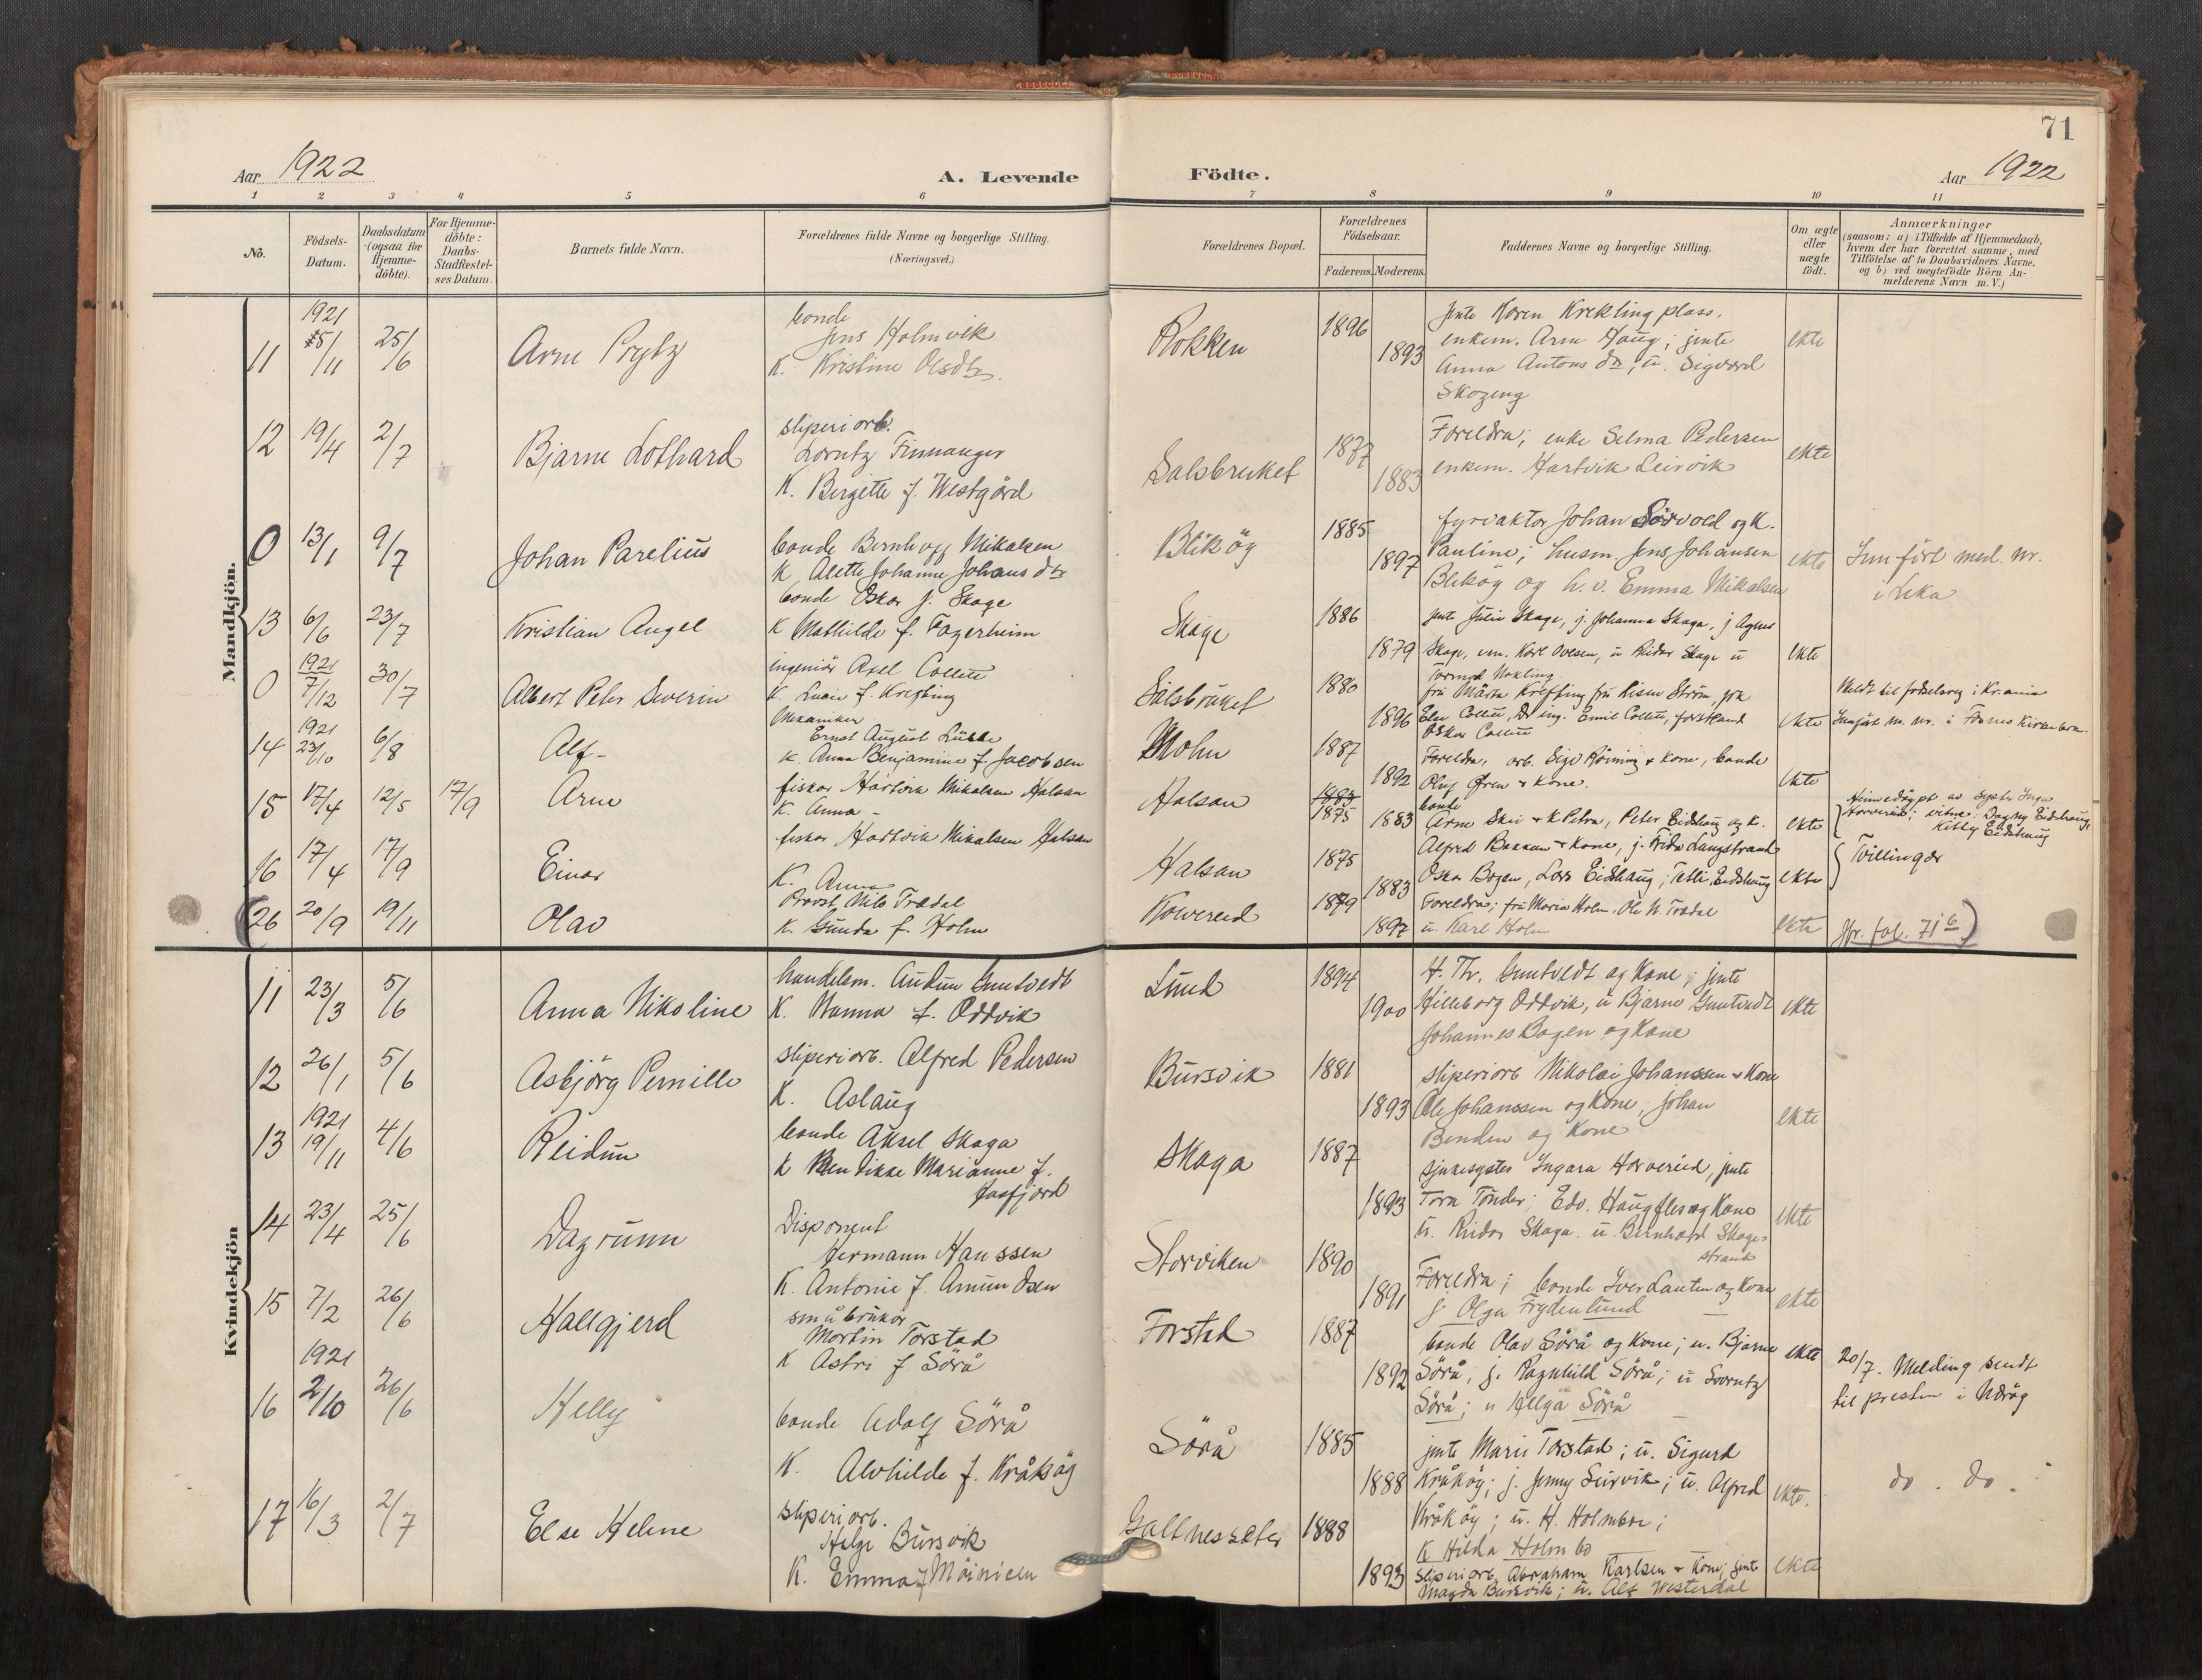 71
Aar 1922
A. Levende
Födte.
Aar 1922
1 2 3 4 5 6 7 8 9 10 11
No.
Födsels-
Datum.
Daabsdatum
(ogsaa for
Hjemme-
döbte).
For Hjemme-
döbte:
Daabs-
Stadfæstel-
ses Datum.
Barnets fulde Navn.
Forældrenes fulde Navne og borgerlige Stilling.
(Næringsvei.)
Forældrenes Bopæl.
Forældrenes
Födselsaar.
Faderens.
Moderens.
Faddernes Navne og borgerlige Stilling.
Om ægte
eller
uægte
födt.
Anmærkninger
(saasom: a) i Tilfælde af Hjemmedaab,
hvem der har forrettet samme, med
Tilföielse af to Daabsvidners Navne.
og b) ved uægtefödte Börn An-
melderens Navn m. V.)
Mandkjön.
11
1921
5/11
25/6
Arne Prytz
bonde
Jens Holmvik
K. Kristine Olsdtr.
Rokken
1896
1893
jente Karen Krekling plass,
enkem. Arne Haug; jente
Anna Antons dr; u. Sigvard
Skozeng
ekte
12
19/4
2/7
Bjarne Lothard
sliperiarb.
Lorntz Finnanger
K. Bergitte f. Westgård
Salsbruket
1877
1883
Foreldra; enke Selma Pedersen
enkem. Hartvik Leirvik
ekte
0
13/1
9/7
Johan Parelius
bonde Bernhoff Mikalsen
K. Alette Johanne Johans dtr
Bliköy
1885
1897
fyrvaktar Johan Sörvold og K.
Pauline; husm. Jens Johansen
Bliköy og h. v. Emma Mikalsen
ekte
Innfört med nr.
i Leka
13
6/6
23/7
Kristian Angel
bonde Oskar J. Skage
K Mathilde f. Fagerheim
Skage
1886
1879
jente Julie Skage, j. Johanna Skage, j Agnes
Skage, um. Karl Ovesen, u Reidar Skage u
ekte
0
1921
7/12
30/7
Albert Peter Severin
ingeniör Axel Collett
K. Lucie f. Krefting
Salsbruket
1880
1896
fru Märta Krefting fru Lisen Ström, frk
Else Collett, Dr ing. Emil Collett, forstkand
Oskar Collett
ekte
Meldt til fødselsreg i Kr.ania
Innfört m. nr. i Fosnes Kirkebok.
14
1921
23/10
6/8
Alf-
Mekaniker
Ernst August Lübbe
K. Anna Benjamine f. Jacobsen
Mohn
1887
1892
Foreldra, arb. Sige Röining & kone, bonde
Oluf Øren & kone.
ekte
15
17/4
12/5
17/9
Arne
fiskar Hartvik Mikalsen Halsan
K. Anna -
Halsan
1883
1875
1883
bonde
Arne Skei & K Petra, Peter Eidshaug og K.
ekte
Heimedöypt av syster Inga
Horvereid; vitne: Dagny Eidshaug,
Kitty Eidshaug
16
17/4
17/9
Einar
fiskar Hartvik Mikalsen Halsan
K. Anna
Halsan
1875
1883
Alfred Bakken & kone, j. Frida Langstrand
Oskar Bogen, Lars Eidshaug; Eidshaug
ekte
Tvillingar
(26
20/9
19/11
Olav
Provst Nils Trædal
K. Gunda f. Holm
Kolvereid
1879
1897
Foreldra; fru Maria Holm, Ole N. Trædal
u. Karl Holm
ekte
Jfr. fol. 71 b)
Kvindekjön
11
23/3
5/6
Anna Nikoline
handelsm. Audun Gmntvedt
K. Nanna f. Oddvik
Lund
1894
1900
H. Thr. Gmntvedt og Kone; jente
Hilleborg Oddvik, u Bjarne Gmntvedt
Johannes Bogen og Kone
ekte
12
26/1
5/6
Asbjörg Pernille
sliperiarb. Alfred Pedersen
K. Aslaug
Bursvik
1881
1893
sliperiarb Nikolai Johanssen & Kone
Ole Johanssen og Kone; Johan
Benden og Kone
ekte
13
1921
19/11
4/6
Reidun
bonde Aksel Skaga
K Bendikke Marianne f.
Gasfjord
Skaga
1887
1893
sjukesyster Ingara Horvereid, jente
Tora Tönder; Edv. Haugfles og Kone
u. Reidar Skaga u. Bernhard Skage-
strand
ekte
14
23/4
25/6
Dagrunn
Disponent
Hermann Hanssen
K. Antonie f. Amundsen
Storviken
1890
1891
Foreldra; bonde Iver Lauten og Kone
j. Olga Frydenlund
ekte
15
7/2
26/6
Hallgjerd
småbrukar
Martin Torstad
K Astri f Sörå
Torstad
1887
1892
bonde Olav Sörå og Kone; u. Bjarne
Sörå; j. Ragnhild Sörå; u Lorntz
Sörå; u Helga Sörå
ekte
20/7. Melding sendt
til presten i Nöröy
16
1921
2/10
26/6
Helly
bonde Adolf Sörå
K. Alvhilde f. Kråköy
Sörå
1885
1888
jente Marie Torstad; u. Sigurd
Kråköy; j. Jenny Leirvik; u. Alfred
Kråköy; u. H. Holmboe;
K Hilda Holmbo
ekte.
do. do.
17
16/3
2/7
Else Helene
sliperiarb.
Helge Bursvik
K. Emma f Möinicen
Galtnessæter
1888
1893
Sliperiarb. Abraham Karlsen & Kone; jente
Magda Bursvik; u. Alf Westerdal
ekte